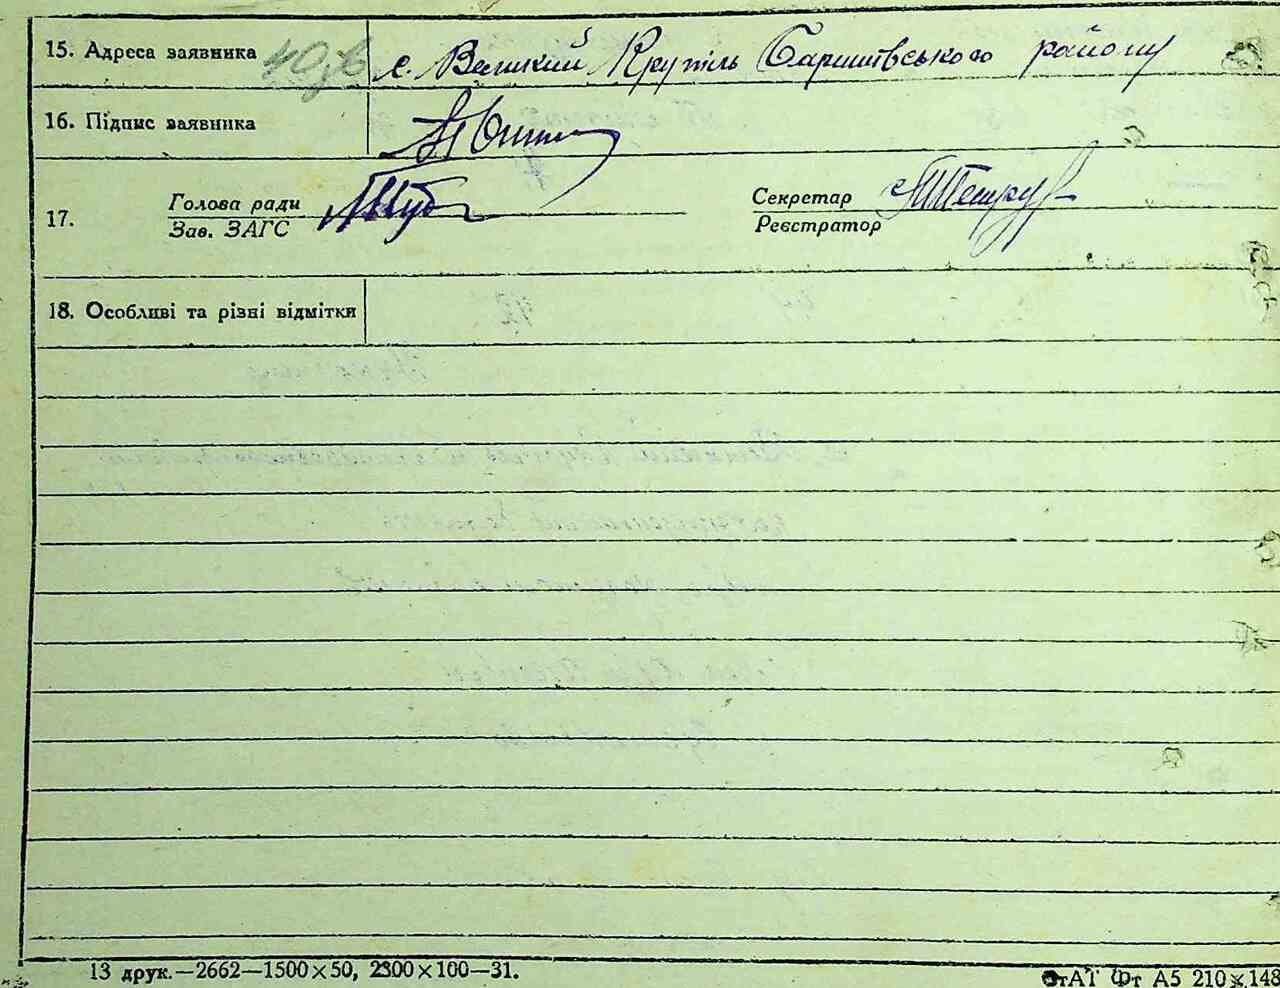 15. Адреса заявника с. Великий Крупіль Баришівського району
16. Підпис заявника
17. Голова ради Секретар
Зав. ЗАГС Реєстратор
18. Особливі та різні відмітки
13 друк.—2662—1500×50, 2300×100—31. ОтАТ Фт А5 210×148